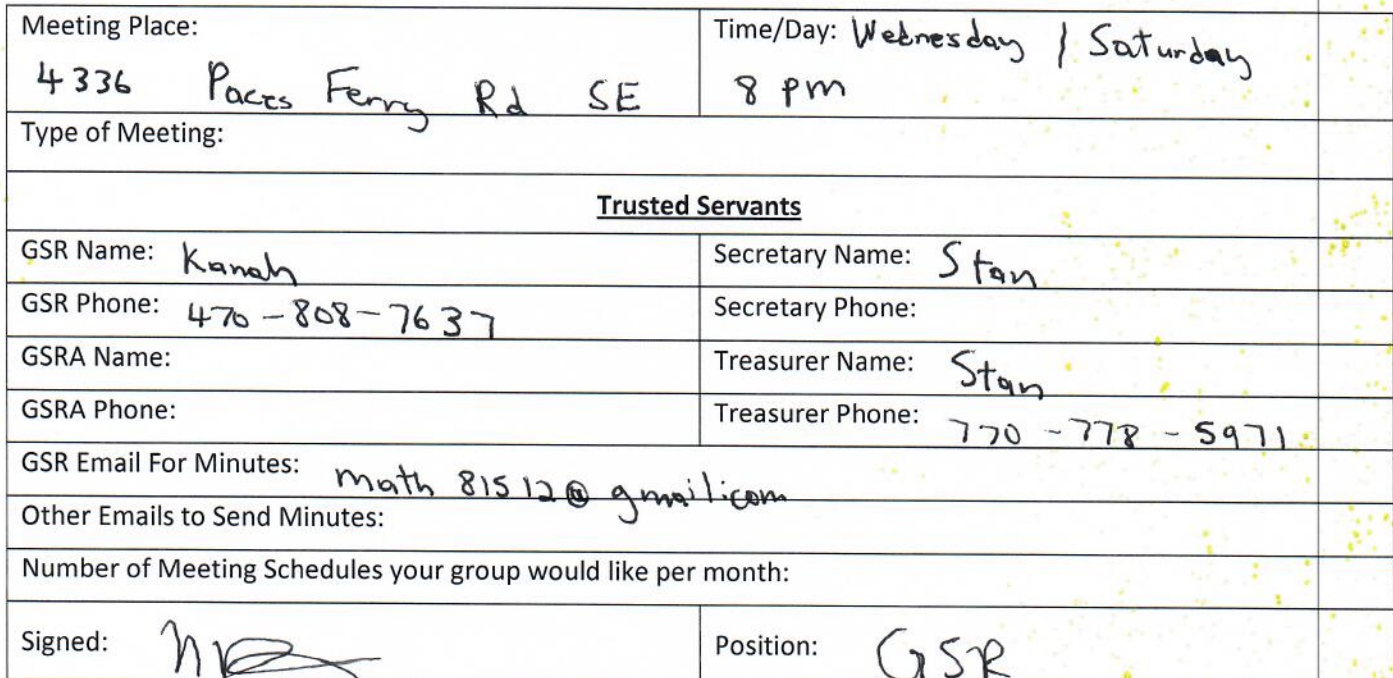 Meeting Place: Time/Day: Wednesday / Saturday
4336 Paces Ferry Rd SE 8 pm
Type of Meeting:
Trusted Servants
GSR Name: Kanah Secretary Name: Stan
GSR Phone: 470-808-7637 Secretary Phone:
GSRA Name: Treasurer Name: Stan
GSRA Phone: Treasurer Phone: 770-778-5971
GSR Email For Minutes: math81512@gmail.com
Other Emails to Send Minutes:
Number of Meeting Schedules your group would like per month:
Signed: Position: GSR